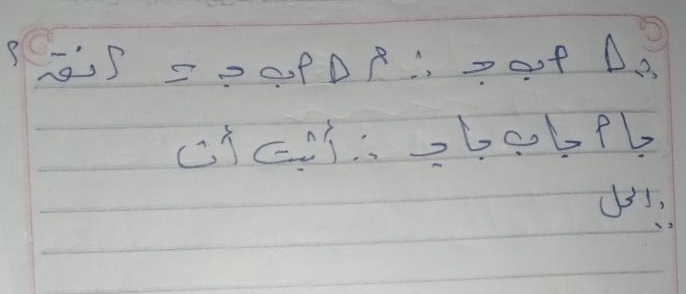 في Δ أ ب ج ∴ م Δ أ ب ج = ٢ نق٢
جا أ جا ب جا ج ∴ أثبت أن
الحل